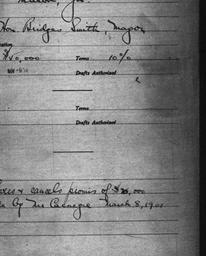 Macon, Ga.
Hon Bridges Smith, Mayor
$50,000 Terms 10%
Drafts Authorized
Terms
Drafts Authorized
& cancels promis of $20,000
by Mr Carnegie March 8, 1901